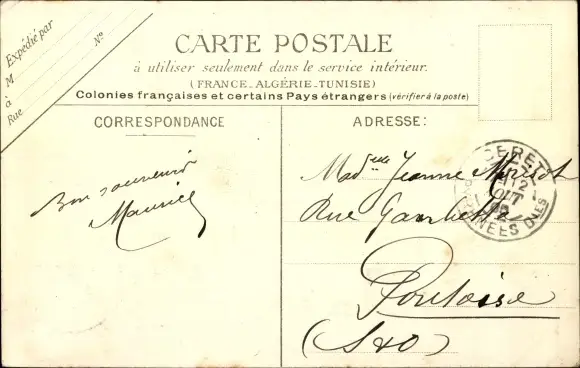 Expédié par
M
à
Rue
N°
CARTE POSTALE
à utiliser seulement dans le service intérieur.
(FRANCE-ALGÉRIE-TUNISIE)
Colonies françaises et certains Pays étrangers (vérifier à la poste)
CORRESPONDANCE
ADRESSE:
Bon souvenir
Maurice
Mad^elle Jeanne
Rue Gambetta
Pontoise
(S&O)
CERET
12
AOUT
PYRENEES ORles